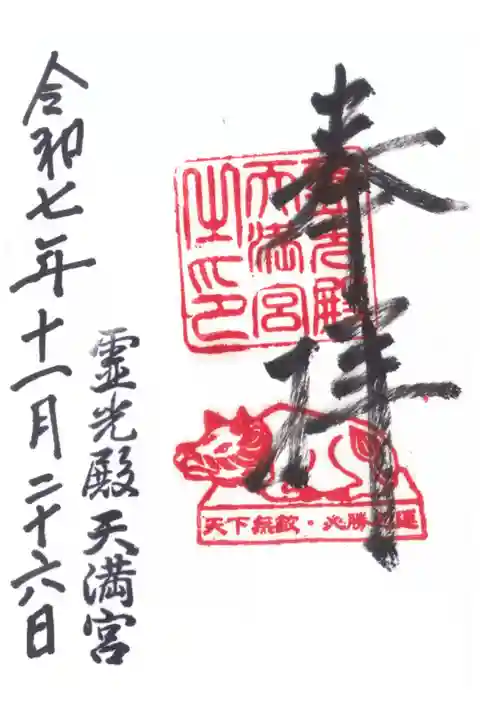 奉拝
霊光殿
天満宮
之印
天下無敵・必勝開運
霊光殿天満宮
令和七年十一月二十六日